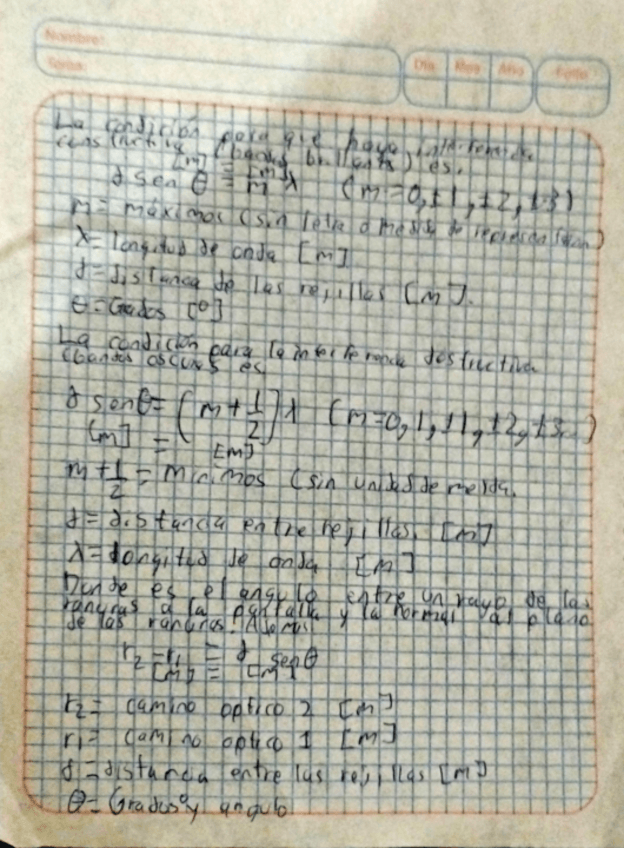 Nombre:
Tema:
Día Mes Año Folio
La condición para que haya interferencia
constructiva (bandas brillants) es.
[m] = [m]
d sen θ = m λ (m=0,±1,±2,±3)
m= máximos (sin letra o medida de
λ= longitud de onda [m]
d= distancia de las rejillas [m].
θ= Grados [°]
La condición para la interferencia destructiva
(bandas oscuras es
d senθ= (m+1/2)λ (m=0,1,±1,±2,±3...)
[m] = [m]
m+1/2 = minimos (sin unidad de merda.
d= distancia entre rejillas. [m]
λ= longitud de onda [m]
Donde es el angulo entre un rayo de las
ranuras a la pantalla y la normal al plano
de las ranuras. Además
r2 - r1 = d senθ
[m] = [m]
r2= camino optico 2 [m]
r1= camino optico 1 [m]
d= distancia entre las rejillas [m]
θ= Grados° y angulo